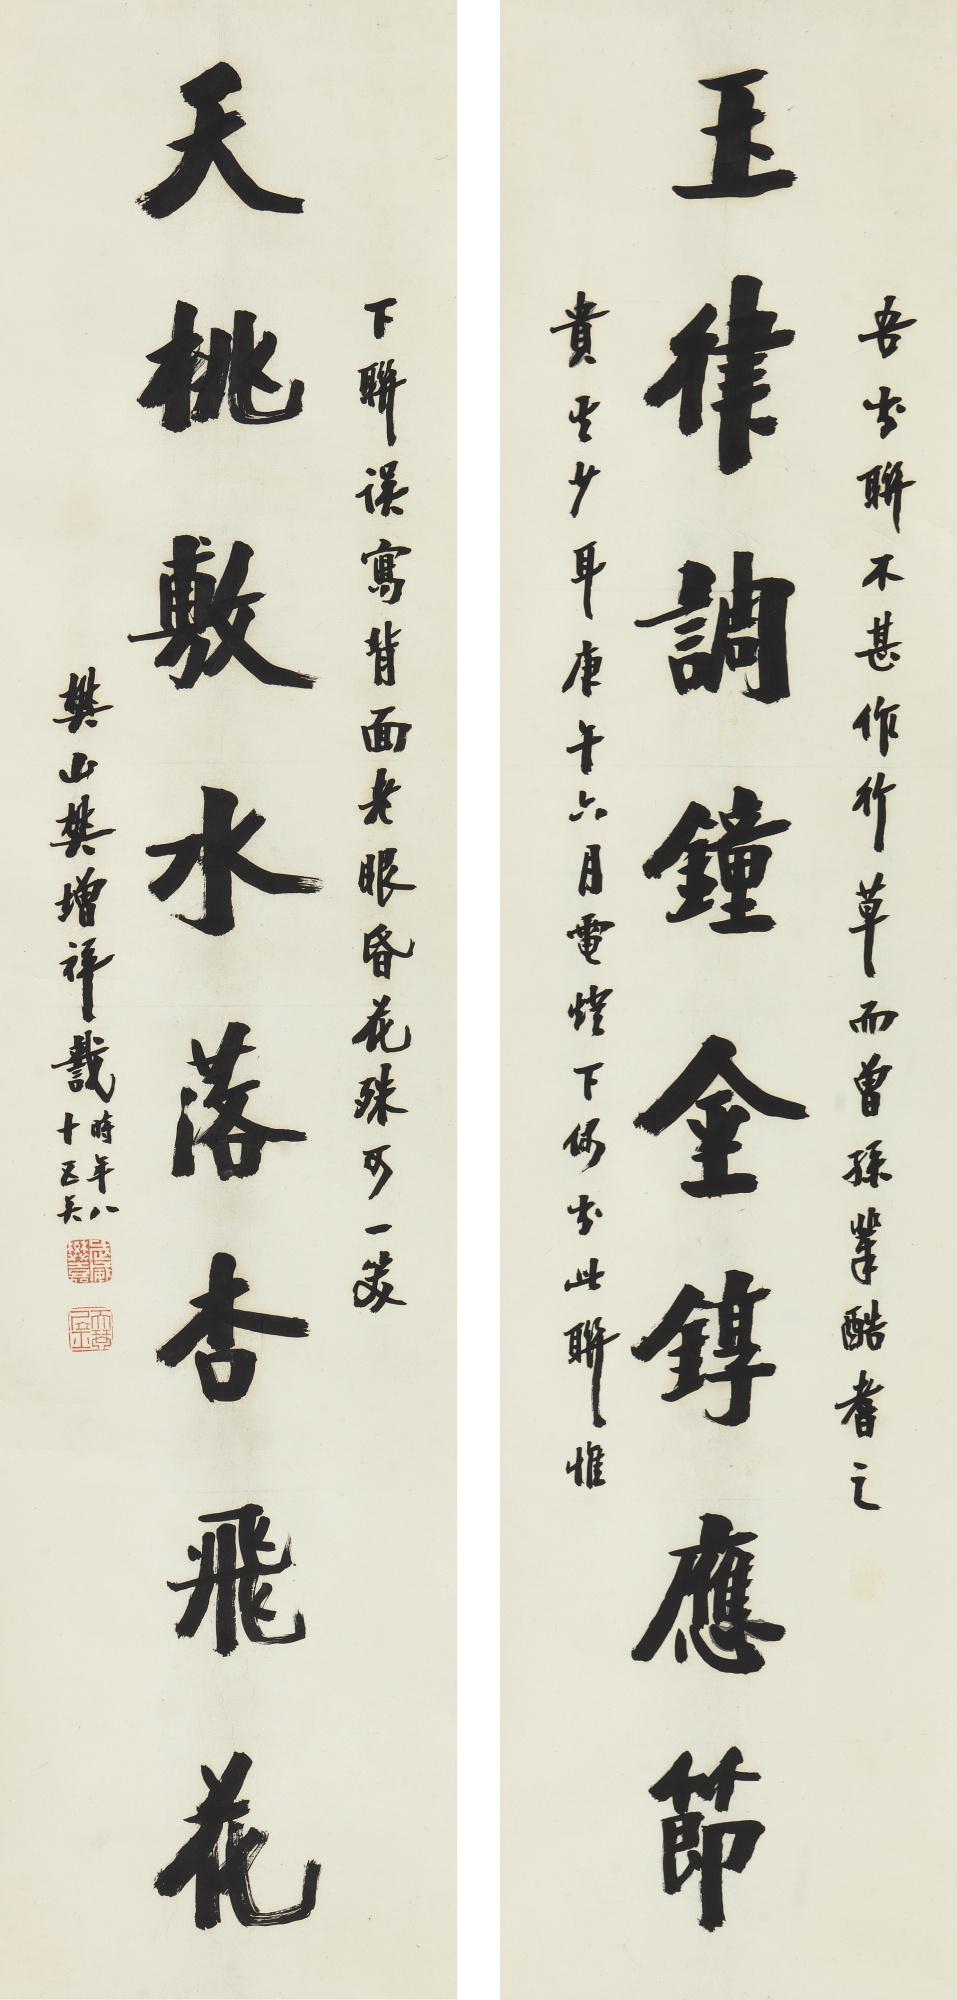 玉律調鐘金錞應節
吾書聯不甚作行草而曾孫輩酷耆之
貴其少耳庚午六月電燈下偶書此聯惟
天桃敷水落杏飛花
下聯誤寫背面老眼昏花殊可一笑
樊山樊增祥識
時年八
十五矣